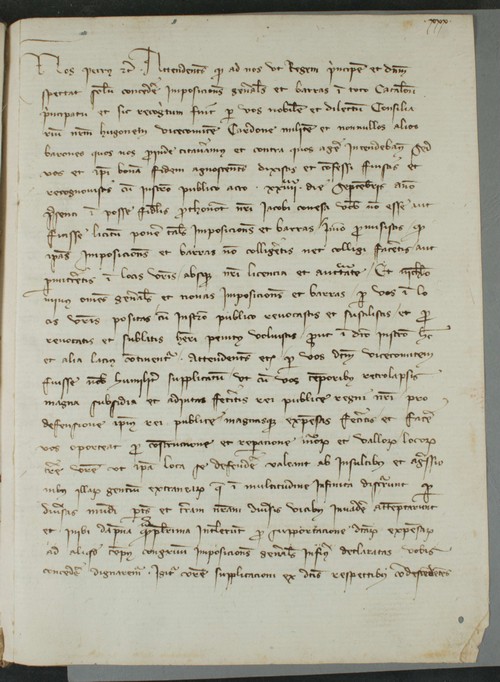 xxx
Nos petrus etc. Attendentes qd ad nos ut Regem principem et dnm
spectat solum concedere Imposiciones generales et barras i toto Catalon
principatu et sic recognitum fuit per vos nobilem et dilectum Consilia
rium nrm hugonem vicecomitem Cardone militem et nonnullos alios
barones quos nos proinde citavimus et contra quos agere intendebamus Sed
vos et ipi bonam fidem agnoscentes dixistis et confessi fuistis et
recognovistis cum instro publico acto xxiiii die Septembris anno
presenti i posse fidelis prothonot nri Jacobi conesa vobis non esse aut
fuisse licitum ponere tales Imposiciones et barras Imo promisistis qd
ipas Imposiciones et barras non colligetis nec colligi facietis aut
permittetis i locis vris absque nri licencia et auctoritate Et
omnes generales et novas Imposiciones et barras per vos i lo
cis vris positas cum instro publico revocastis et sustulistis et pro
revocatis et sublatis heri penitus voluistis prout i dco instro hec
et alia lacius continentur Attendentes eciam per vos dcm vicecomitem
fuisse nobis humiliter supplicatum ut cum vos temporibus retrolapsis
magna subsidia et adjutas feceritis rei publice regni nri pro
defensione ipius rei publice magnasque expensas feceritis et facere
vos oporteat pro constructione et reparacione murorum et vallorum locorum
terre vre ut ipa loca se defendere valeant ab insultibus et agressio
nibus gentium extranearum que i multitudine infinita discurrunt per
diversas mundi partes et terram nram diversis vicibus invadere attemptarunt
et inibi dampna quamplurima intulerunt pro supportacione dictarum expensarum
ad aliquod tempus congruum Imposiciones generales infrius declaratas vobis
concedere dignaremur Igitur vre supplicacioni ex dcis respectibus condescendentes